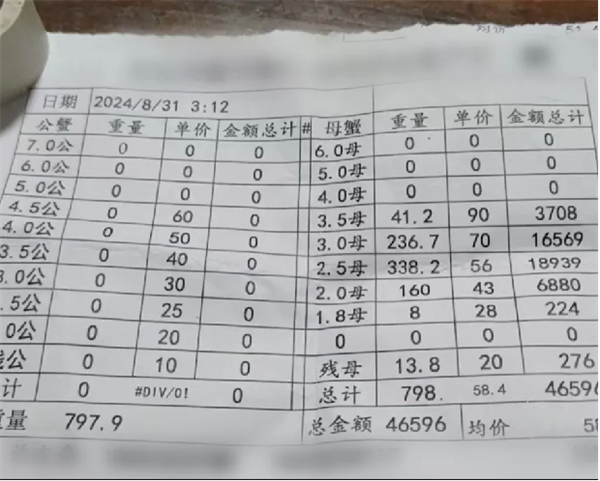 均价 51.4
日期 2024/8/31 3:12
公蟹 重量 单价 金额总计 # 母蟹 重量 单价 金额总计
7.0公 0 0 0 6.0母 0 0 0
6.0公 0 0 0 5.0母 0 0 0
5.0公 0 0 0 4.0母 0 0 0
4.5公 0 60 0 3.5母 41.2 90 3708
4.0公 0 50 0 3.0母 236.7 70 16569
3.5公 0 40 0 2.5母 338.2 56 18939
3.0公 0 30 0 2.0母 160 43 6880
.5公 0 25 0 1.8母 8 28 224
0公 0 20 0 0 0 0 0
残公 0 10 0 残母 13.8 20 276
计 0 #DIV/0! 0 总计 798. 58.4 46596
重量 797.9 总金额 46596 均价 58